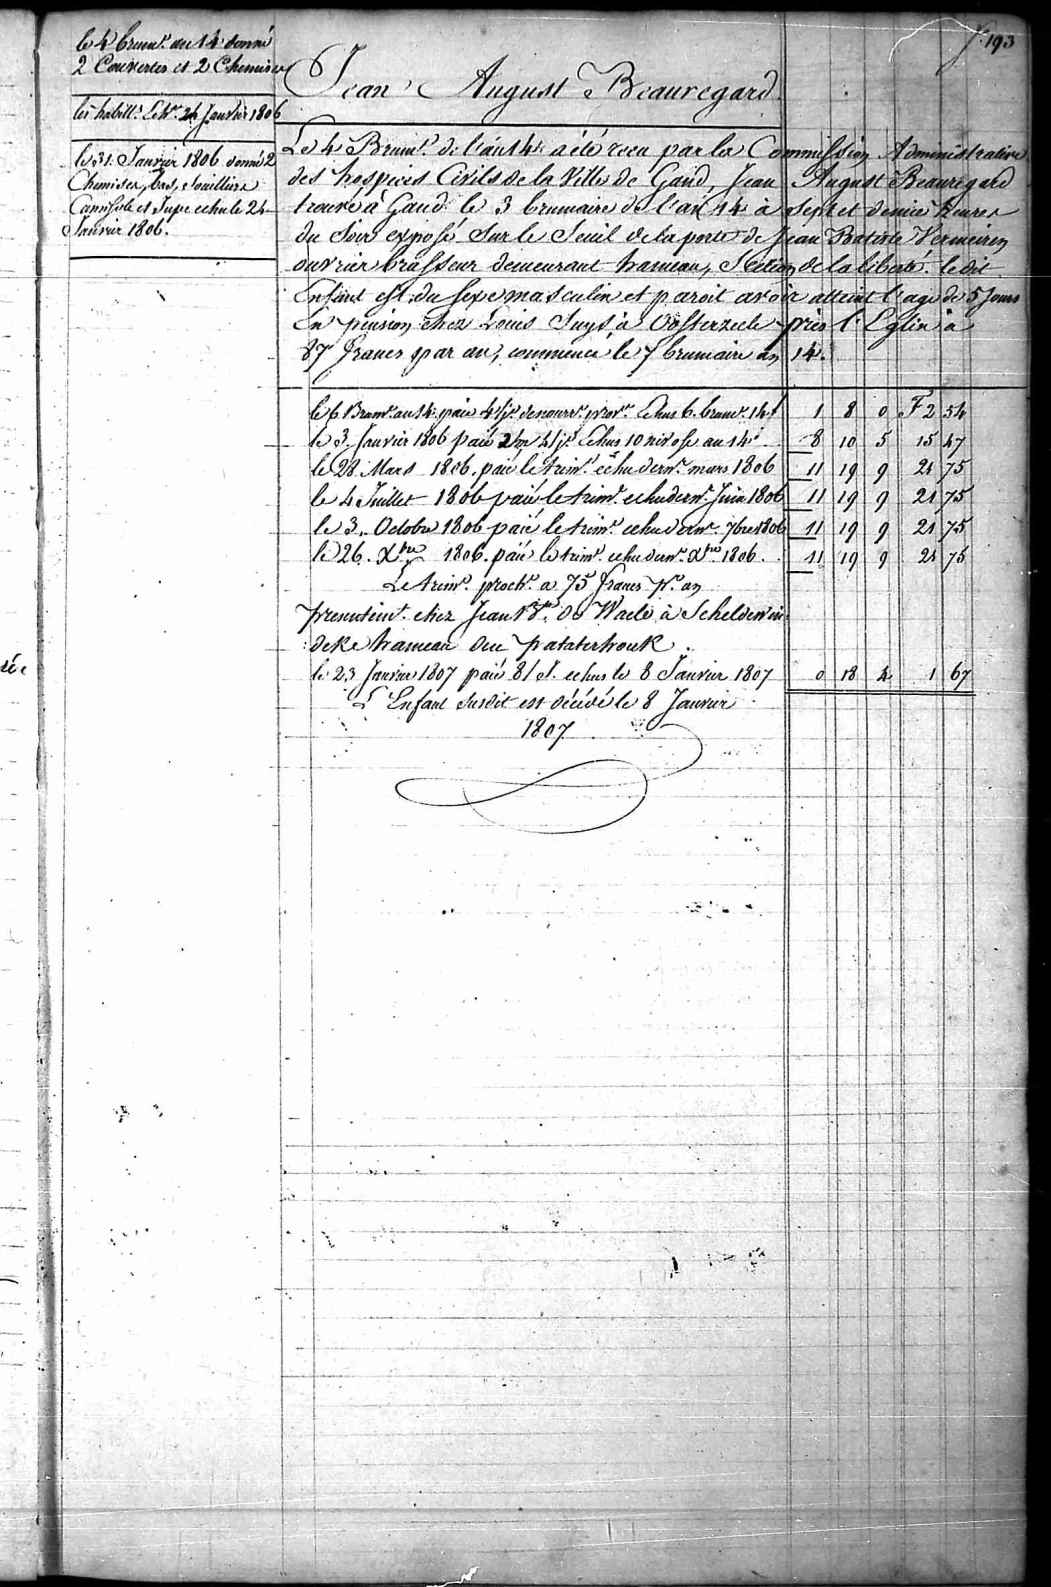 f. 193
le 4 brum.r an 14 donné
2 Couvertes et 2 Chemises
les habill.s Echs. 24 Janvier 1806
le 31. Janvier 1806 donné 2
Chemises, bas, Souilliers
Camisole et Jupe echu le 24
Janvier 1806.
Jean August Beauregard
Le 4 Brum.r de l'an 14 a été recu par la Commission Administrative
des hospices Civils de la Ville de Gand, Jean August Beauregard
trouvé à Gand le 3 brumaire de l'an 14 à Sept et demie heures
du Soir exposé Sur le Seuil de la porte de Jean Batiste Vermeiren
ouvrier brasseur demeurant hameau, Section de la liberté. le dit
Enfant est du sexe masculin et paroit avoir atteint l'age de 5 Jours
En pension chez Louis Suys à Oosterzeele près l'Eglise à
87 francs par an, commencé le 7 brumaire an 14.
le 6 Brum.r an 14. paié 4 js. de nourr.e prov.e Echus 6. brum.r 14 1 8 0 F 2 54
le 3. Janvier 1806 paié 2 m 4 j.s Echus 10 nivose an 14 8 10 5 15 47
le 28 Mars 1806. paié le trim.e échu dern.r mars 1806 11 19 9 21 75
le 4 Juillet 1806 paié le trim.e echu dern.r Juin 1806 11 19 9 21 75
le 3. Octobre 1806 paié le trim.e echu dern.r 7bre 1806 11 19 9 21 75
le 26. Xbre 1806. paié le trim.e echu dern.r Xbre 1806. 11 19 9 21 75
Le trim.e proch.n a 75 francs pr. an
presentem.t chez Jean B.te De Waele à Schelderwin
deke hameau den pataterhouk.
le 23 Janvier 1807 paié 8 J. echus le 8 Janvier 1807 0 18 4 1 67
L'Enfant Susdit est décédé le 8 Janvier
1807